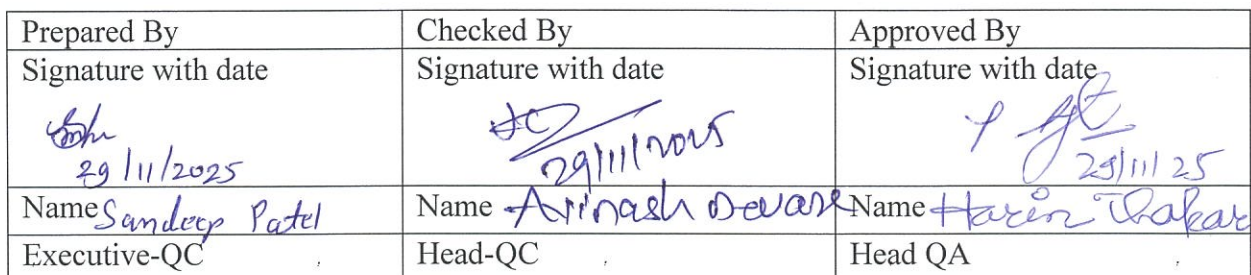 Prepared By Checked By Approved By
Signature with date Signature with date Signature with date
29/11/2025 29/11/2025 29/11/25
Name Sandeep Patel Name Avinash Devare Name Harin Thakar
Executive-QC Head-QC Head QA